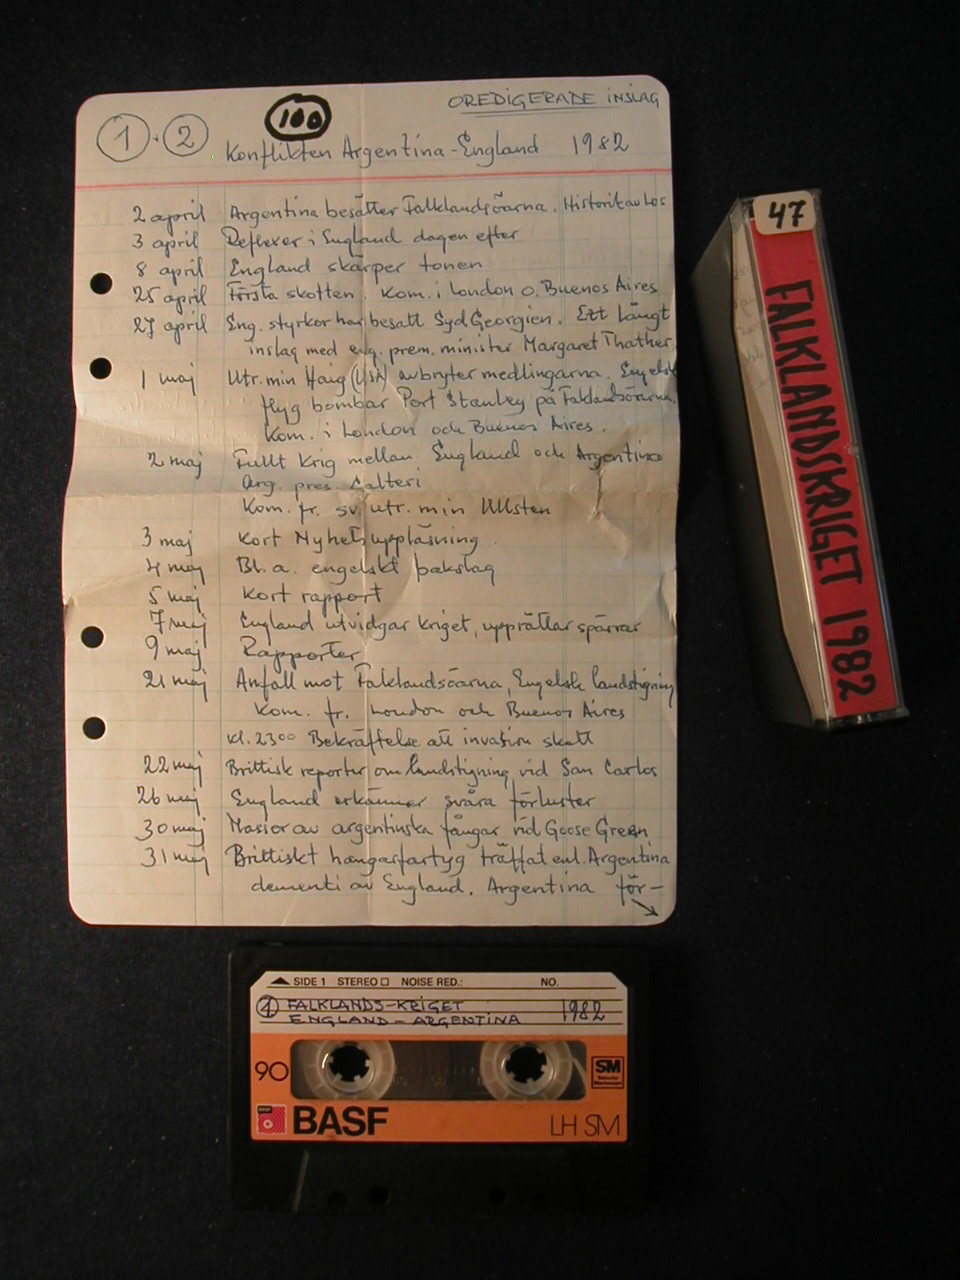 OREDIGERADE INSLAG
1 + 2
100
Konflikten Argentina-England 1982
2 april Argentina besätter Falklandsöarna. Historik av
3 april Reflexer i England dagen efter
8 april England skärper tonen
25 april Första skotten. Kom. i London o. Buenos Aires
27 april Eng. styrkor har besatt Syd Georgien. Ett långt
inslag med eng. prem. minister Margaret Thather
1 maj Utr. min Haig (USA) avbryter medlingarna. Engelsk
flyg bombar Port Stanley på Falklandsöarna.
Kom. i London och Buenos Aires.
2 maj Fullt krig mellan England och Argentina
Arg. pres. Galteri
Kom. fr. sv. utr. min Ullsten
3 maj Kort Nyhetsuppläsning.
4 maj Bl.a. engelskt bakslag
5 maj Kort rapport
7 maj England utvidgar kriget, upprättar spärrar
9 maj Rapporter
21 maj Anfall mot Falklandsöarna, Engelsk landstigning
Kom. fr. London och Buenos Aires
kl. 23 00 Bekräftelse att invasion skett
22 maj Brittisk reporter om landstigning vid San Carlos
26 maj England erkänner svåra förluster
30 maj Massor av argentinska fångar vid Goose Green
31 maj Brittiskt hangarfartyg träffat enl. Argentina
dementi av England. Argentina för-
47
FALKLANDSKRIGET 1982
SIDE 1 STEREO NOISE RED.: NO.
1 FALKLANDS-KRIGET 1982
ENGLAND - ARGENTINA
90
SM
Security
Mechanism
BASF
BASF
LH SM